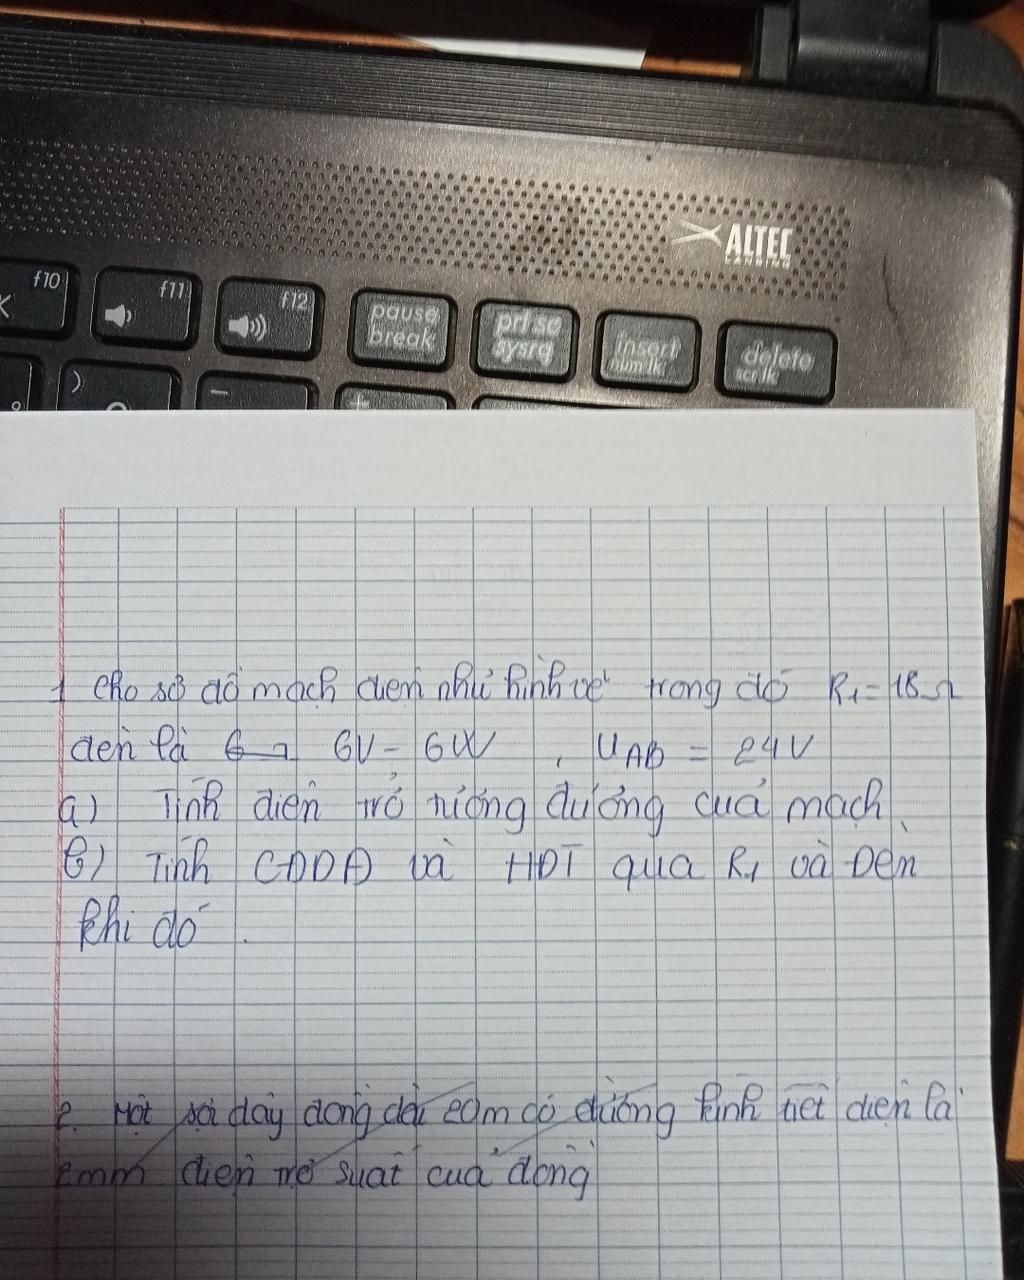 ALTEC
LANSING
f10
f11
f12
pause
break
prt sc
sysrq
insert
num lk
delete
scr lk
)
1 Cho sơ đồ mạch điện như hình vẽ trong đó R₁ = 18 Ω
đèn là 6V - 6W , UAB = 24V
a) Tính điện trở tương đương của mạch
b) Tính CĐDĐ và HĐT qua R₁ và Đèn
khi đó .
2. Một sợi dây đồng dài 20m có đường kính tiết diện là
2mm điện trở suất của đồng